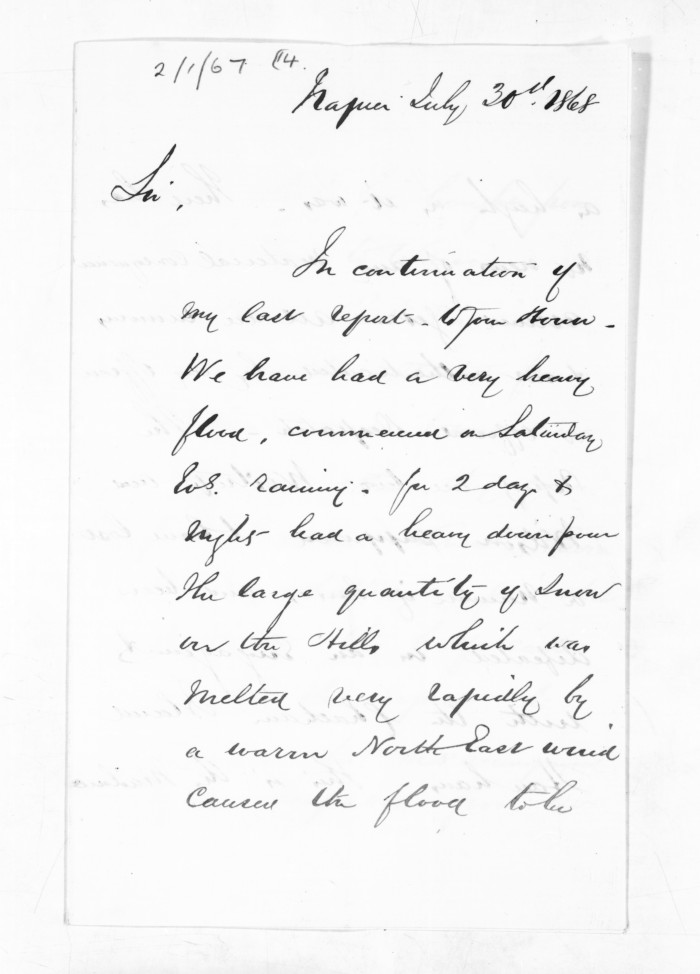 2/1/67 114.
Napier July 30th 1868
Sir,
In continuation of
my last report - to your Honor -
We have had a very heavy
flood, commenced on Saturday
Evg. raining - for 2 days &
nights had a heavy down pour
the large quantity of Snow
on the Hills which was
melted very rapidly by
a warm North East wind
caused the flood to be